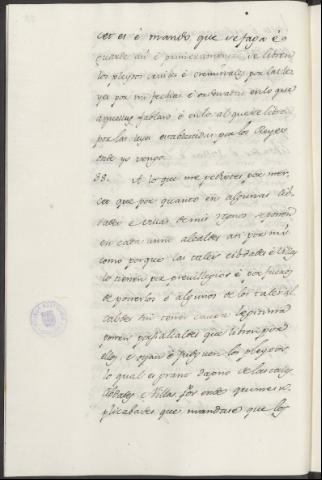 cer es é mando, que se faga é
guarde ansi é primeramente se libren
los pleytos civiles é criminales por las le-
yes por mi fechas é ordenadas en lo que
aquellas fablaren é en lo al que se libre
por las leyes establecidas por los Reyes
onde yo vengo.
38. A lo que me pedistes por mer-
cet que por quanto en algunas Cib-
dades é villas de mis regnos se ponen
en cada anno alcaldes asi por mi
como porque las tales cibdades é villas
lo tienen por previllegio é por fueros
de ponerlos é algunos de los tales al-
caldes sin tener causa legitima
ponen por si alcaldes que libren por
ellos é oyan é judguen los pleytos
lo qual es grand danno de las tales
cibdades é villas por ende que me su-
plicabades que mandase que los